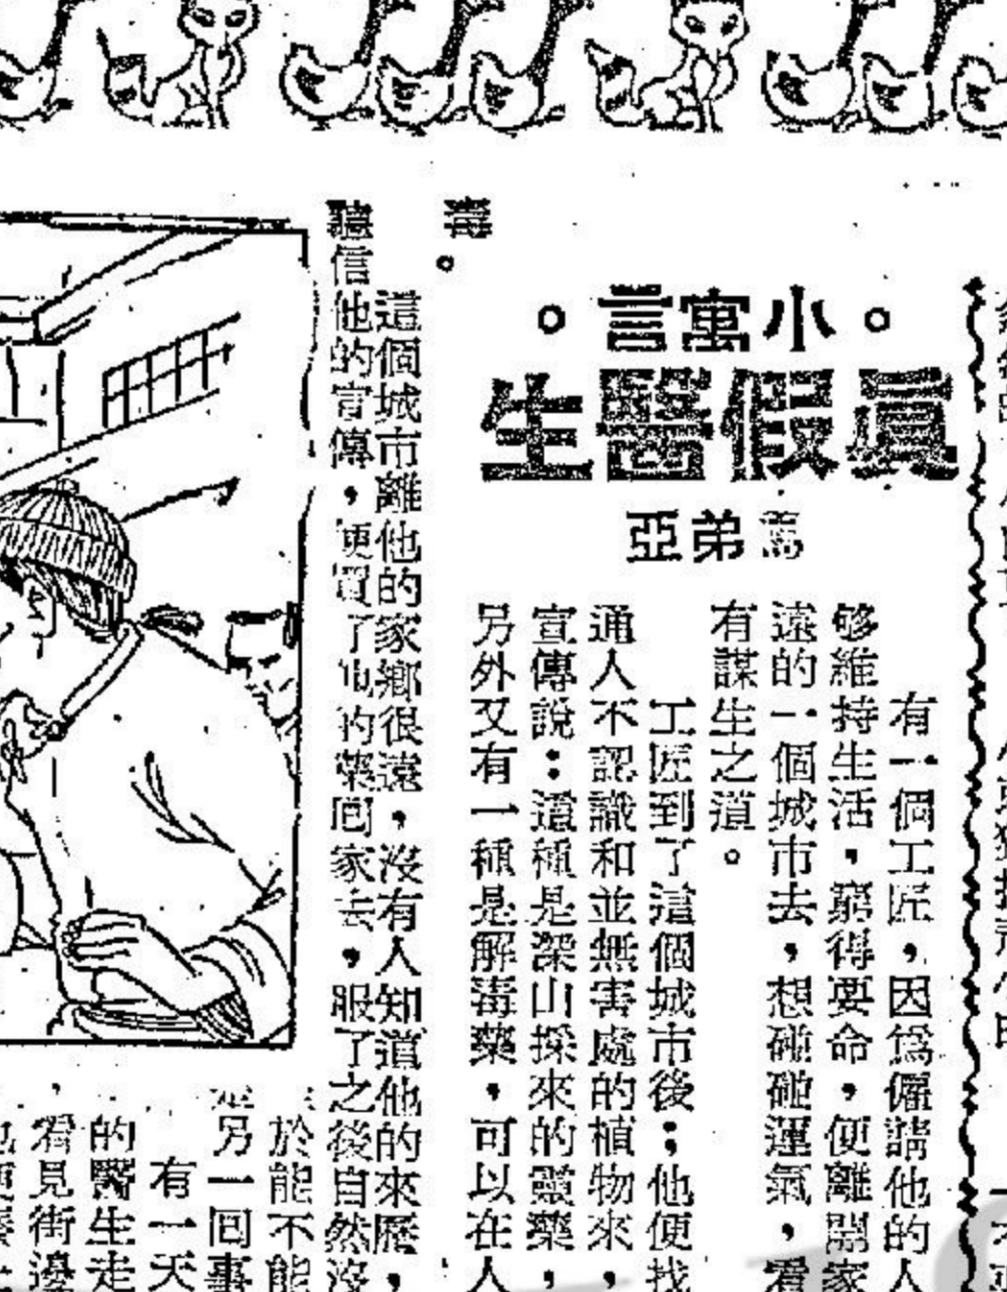 。小寓言。
眞假醫生
篤弟亞
有一個工匠，因爲僱請他的人
够維持生活，窮得要命，便離開家
遠的一個城市去，想碰碰運氣，看
有謀生之道。
工匠到了這個城市後；他便找
通人不認識和並無害處的植物來，
宣傳說：這種是深山採來的靈藥，
另外又有一種是解毒藥，可以在人
毒。
這個城市離他的家鄉很遠，沒有人知道他的來歷，
聽信他的宣傳，便買了他的藥回家去，服了之後自然沒
於能不能
另一回事
有一天
的醫生走
看見街邊